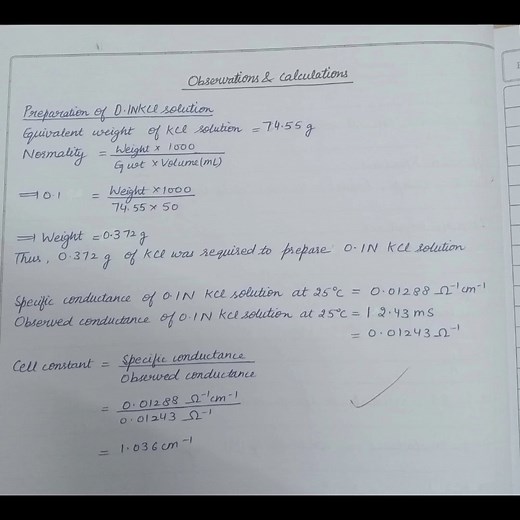 Observations & calculations
Preparation of 0.1N KCl solution
Equivalent weight of KCl solution = 74.55 g
Normality = Weight × 1000
Eq wt × Volume (mL)
⇒ 0.1 = Weight × 1000
74.55 × 50
⇒ Weight = 0.372 g
Thus, 0.372 g of KCl was required to prepare 0.1N KCl solution
Specific conductance of 0.1N KCl solution at 25°C = 0.01288 Ω⁻¹cm⁻¹
Observed conductance of 0.1N KCl solution at 25°C = 12.43 mS
= 0.01243 Ω⁻¹
Cell constant = Specific conductance
Observed conductance
= 0.01288 Ω⁻¹cm⁻¹
0.01243 Ω⁻¹
= 1.036 cm⁻¹